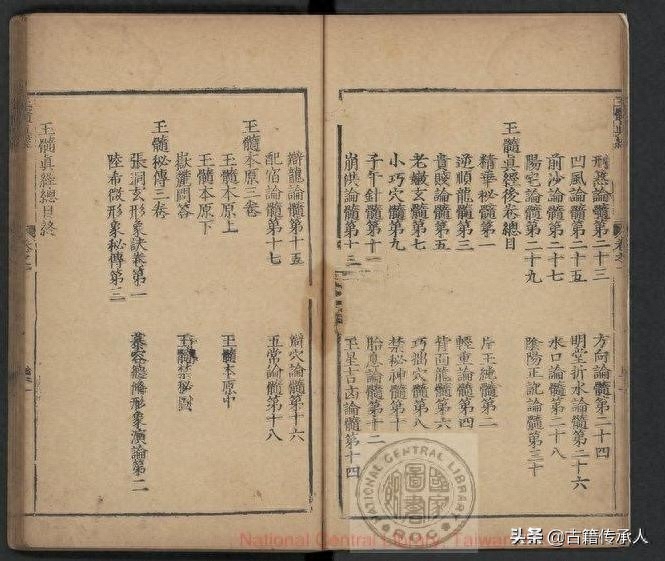 刑煞論髓第二十三 方向論髓第二十四
凹風論髓第二十五 明堂折水論髓第二十六
前沙論髓第二十七 水口論髓第二十八
陽宅論髓第二十九 陰陽正訛論髓第三十
玉髓真經後卷總目
精華秘髓第一 片玉純髓第二
逆順龍髓第三 輕重論髓第四
貴賤論髓第五 背面龍髓第六
老嫩玄髓第七 巧拙穴髓第八
小巧穴髓第九 禁秘神髓第十
子午針髓第十一 胎息論髓第十二
崩洪論髓第十三 五星吉凶論髓第十四
辯龍論髓第十五 辯穴論髓第十六
配宿論髓第十七 五常論髓第十八
玉髓本原三卷
玉髓本原上 玉髓本原中
玉髓本原下
嶽麓問答 玉髓禁秘圖
玉髓秘傳三卷
張洞玄形象訣卷第一 慕容總脩形象演論第二
陸希微形象秘傳第三
玉髓真經總目終
NATIONAL CENTRAL LIBRARY
國家圖書館
ROC
National Central Library, Taiwan
头条 @古籍传承人